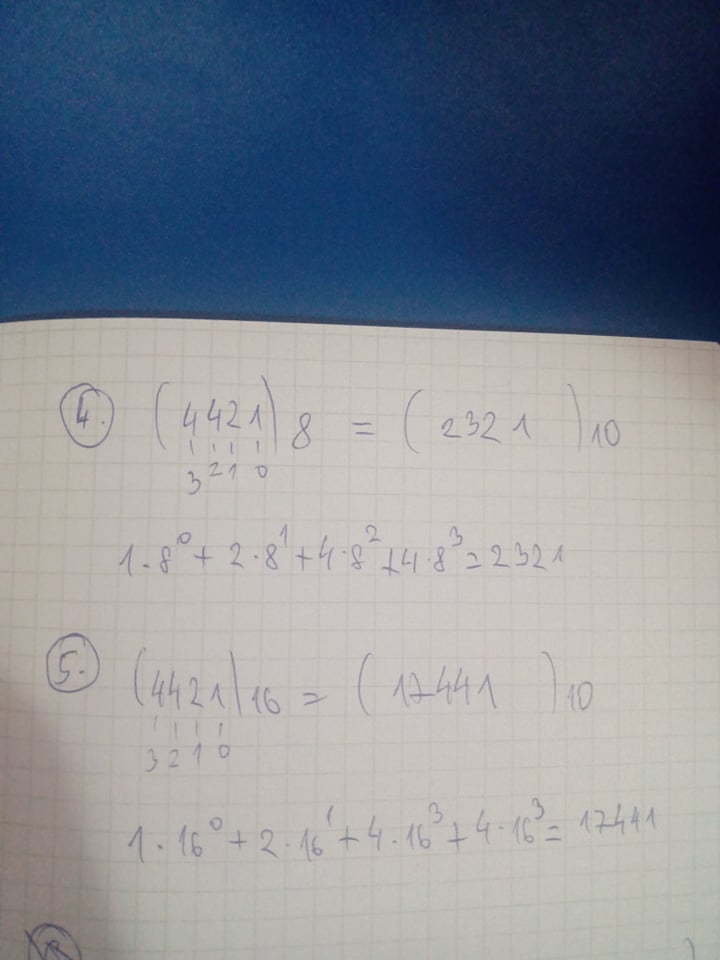 4. (4421)8 = (2321)10
3 2 1 0
1·8^0 + 2·8^1 + 4·8^2 + 4·8^3 = 2321
5. (4421)16 = (17441)10
3 2 1 0
1·16^0 + 2·16^1 + 4·16^3 + 4·16^3 = 17441